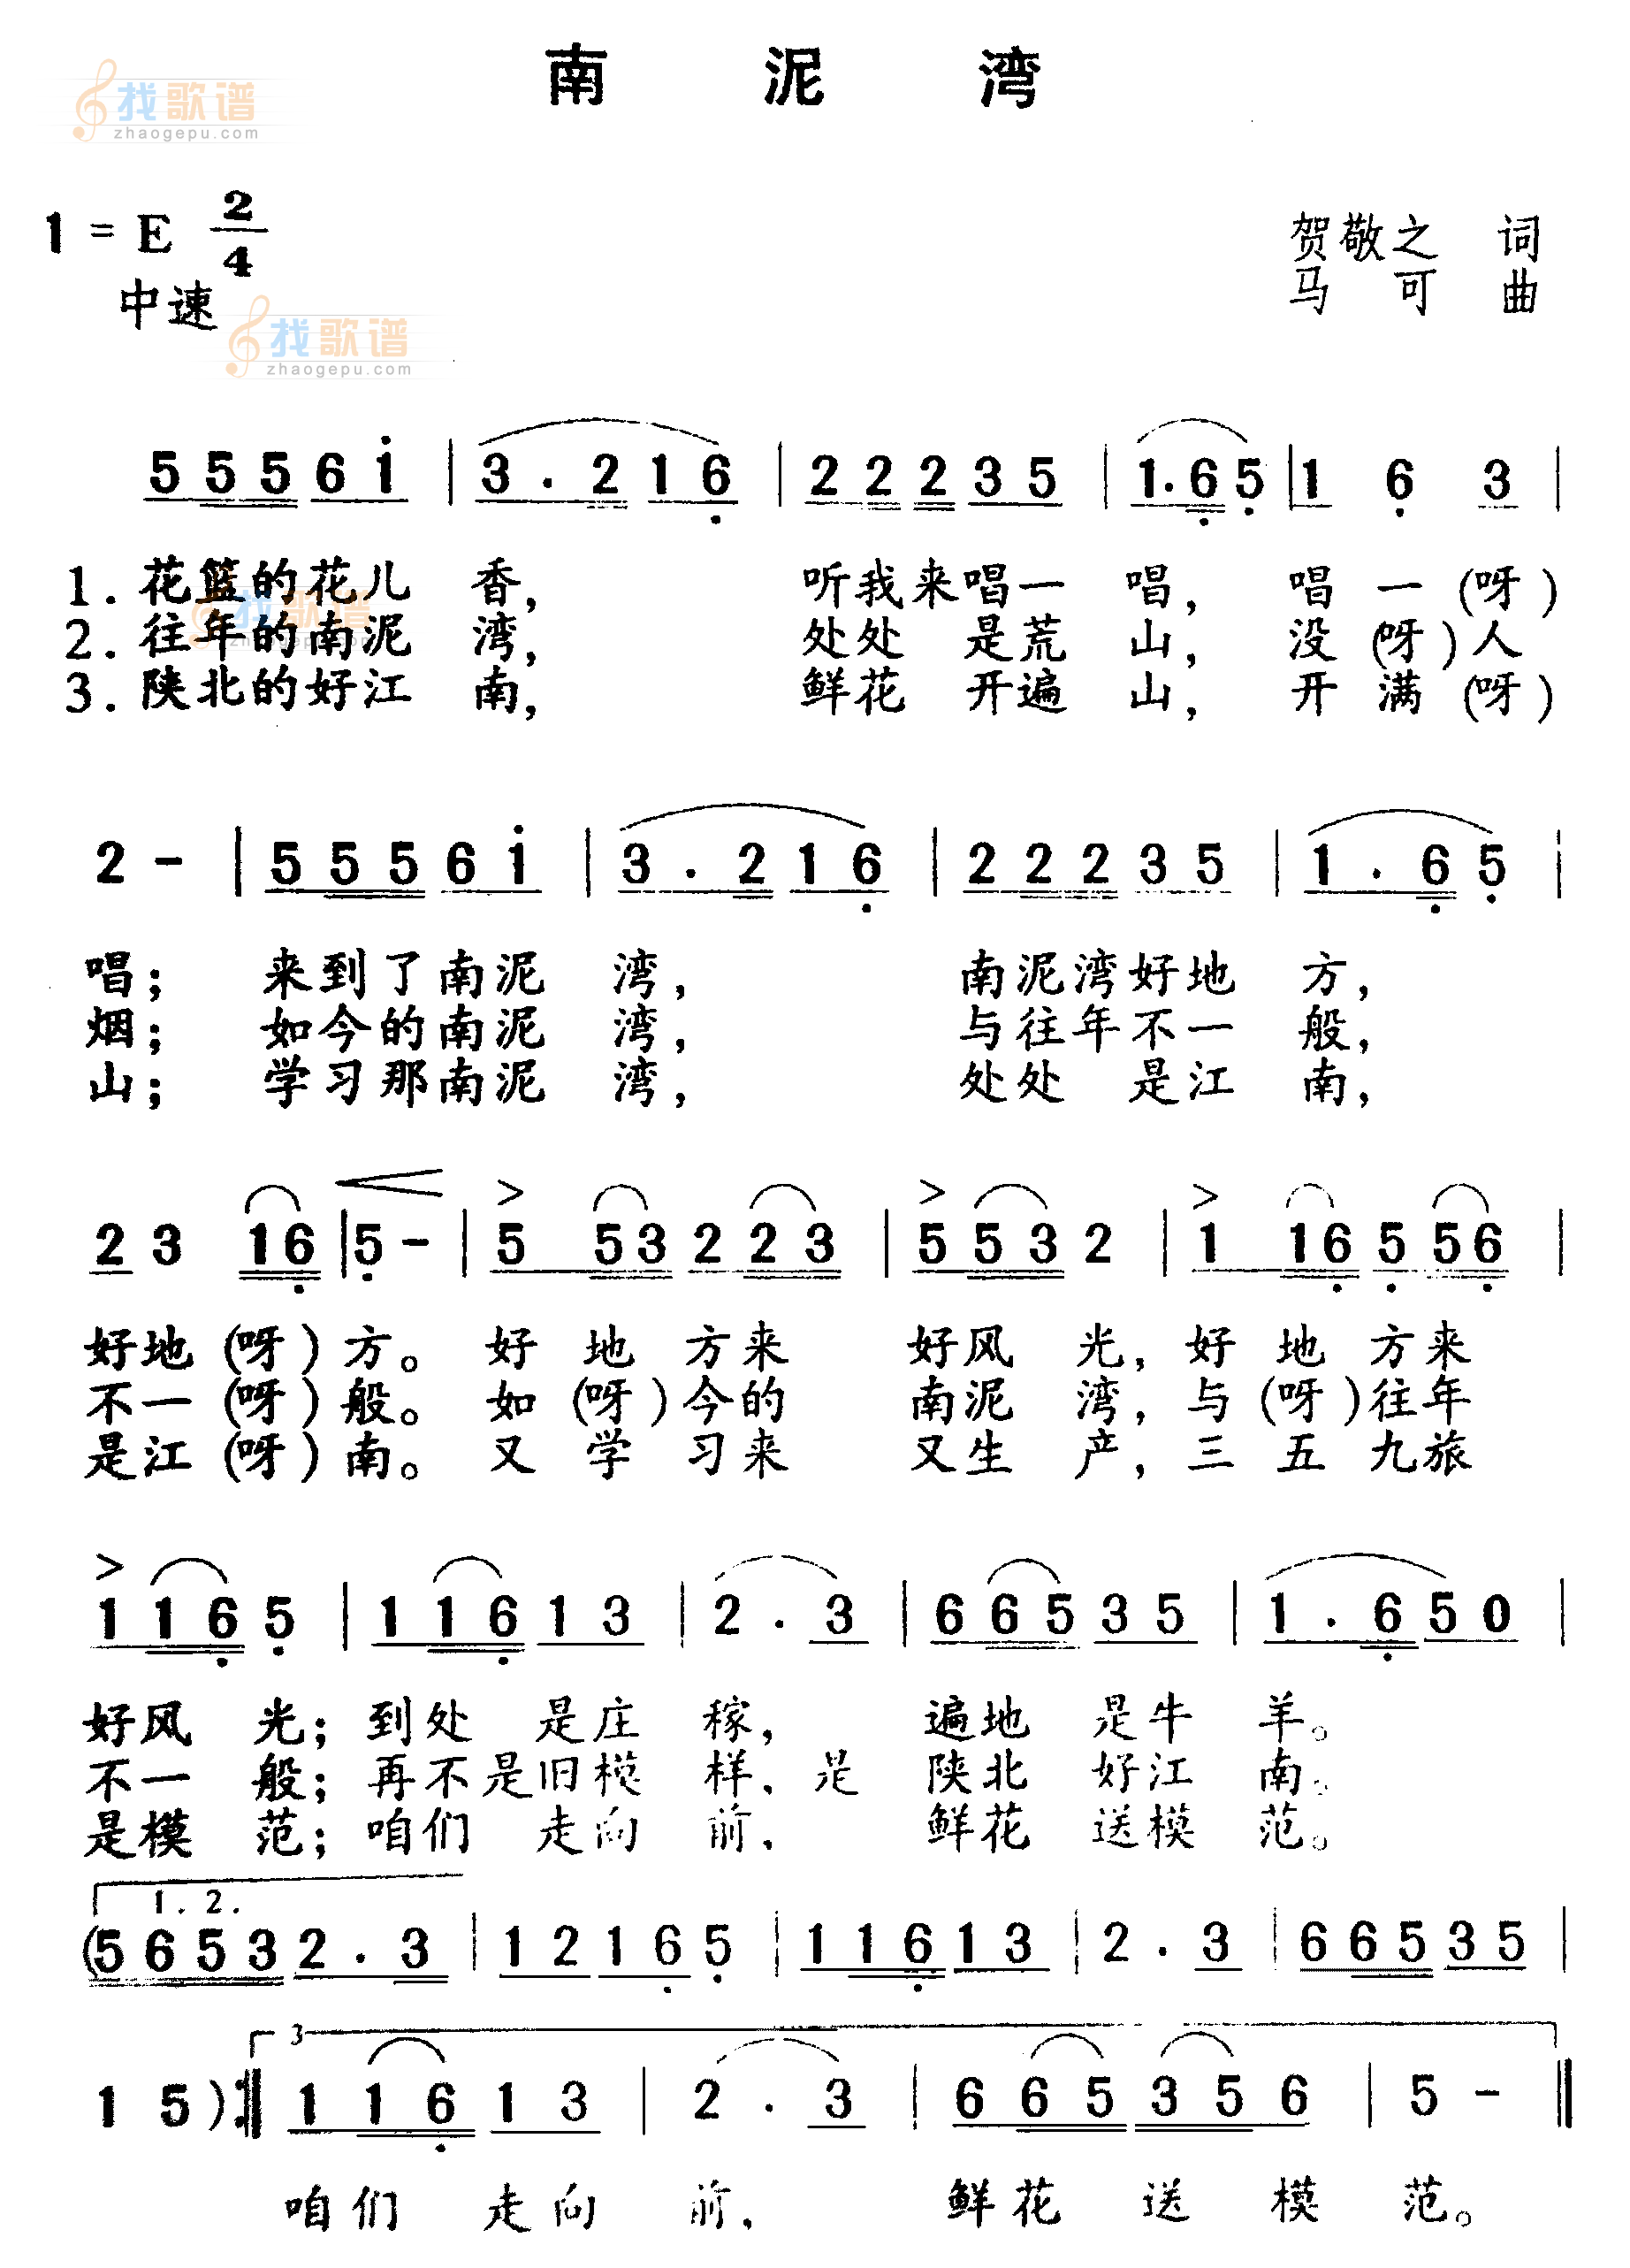 南 泥 湾
找歌谱
zhaogepu.com
1 = E 2/4
贺敬之 词
中速
马 可 曲
找歌谱
zhaogepu.com
5 5 5 6 i | 3 . 2 1 6 | 2 2 2 3 5 | 1 . 6 5 | 1 6 3 |
1. 花篮的花儿 香, 听我来唱一 唱, 唱 一 (呀)
2. 往年的南泥 湾, 处处 是荒 山, 没 (呀) 人
3. 陕北的好江 南, 鲜花 开遍 山, 开 满 (呀)
2 - | 5 5 5 6 i | 3 . 2 1 6 | 2 2 2 3 5 | 1 . 6 5 |
唱; 来到了南泥 湾, 南泥湾好地 方,
烟; 如今的南泥 湾, 与往年不一 般,
山; 学习那南泥 湾, 处处 是江 南,
2 3 1 6 | 5 - | 5 5 3 2 2 3 | 5 5 3 2 | 1 1 6 5 5 6 |
好地 (呀) 方。 好 地 方来 好风 光, 好 地 方来
不一 (呀) 般。 如 (呀) 今的 南泥 湾, 与 (呀) 往年
是江 (呀) 南。 又 学 习来 又生 产, 三 五 九旅
1 1 6 5 | 1 1 6 1 3 | 2 . 3 | 6 6 5 3 5 | 1 . 6 5 0 |
好风 光; 到处 是庄 稼, 遍地 是牛 羊。
不一 般; 再不是旧模 样, 是 陕北 好江 南。
是模 范; 咱们 走向 前, 鲜花 送模 范。
1. 2.
(5 6 5 3 2 . 3 | 1 2 1 6 5 | 1 1 6 1 3 | 2 . 3 | 6 6 5 3 5 |
3
1 5 ) :‖ 1 1 6 1 3 | 2 . 3 | 6 6 5 3 5 6 | 5 - ‖
咱们 走向 前, 鲜花 送 模 范。